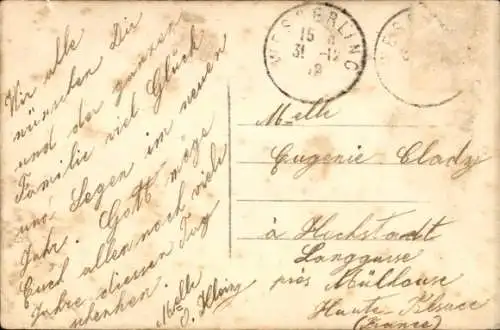 Wir alle
wünschen Dir
und der ganzen
Familie viel Glück
und Segen im neuen
Jahr. Gott möge
Euch allen noch viele
Jahre diesen Tag
schenken.
Melle
E. Klein
WESSERLING
15
31 -12
Melle
Eugenie Clady
à Hochstadt
Langgasse
près Mülhouse
Haute Alsace
(France)